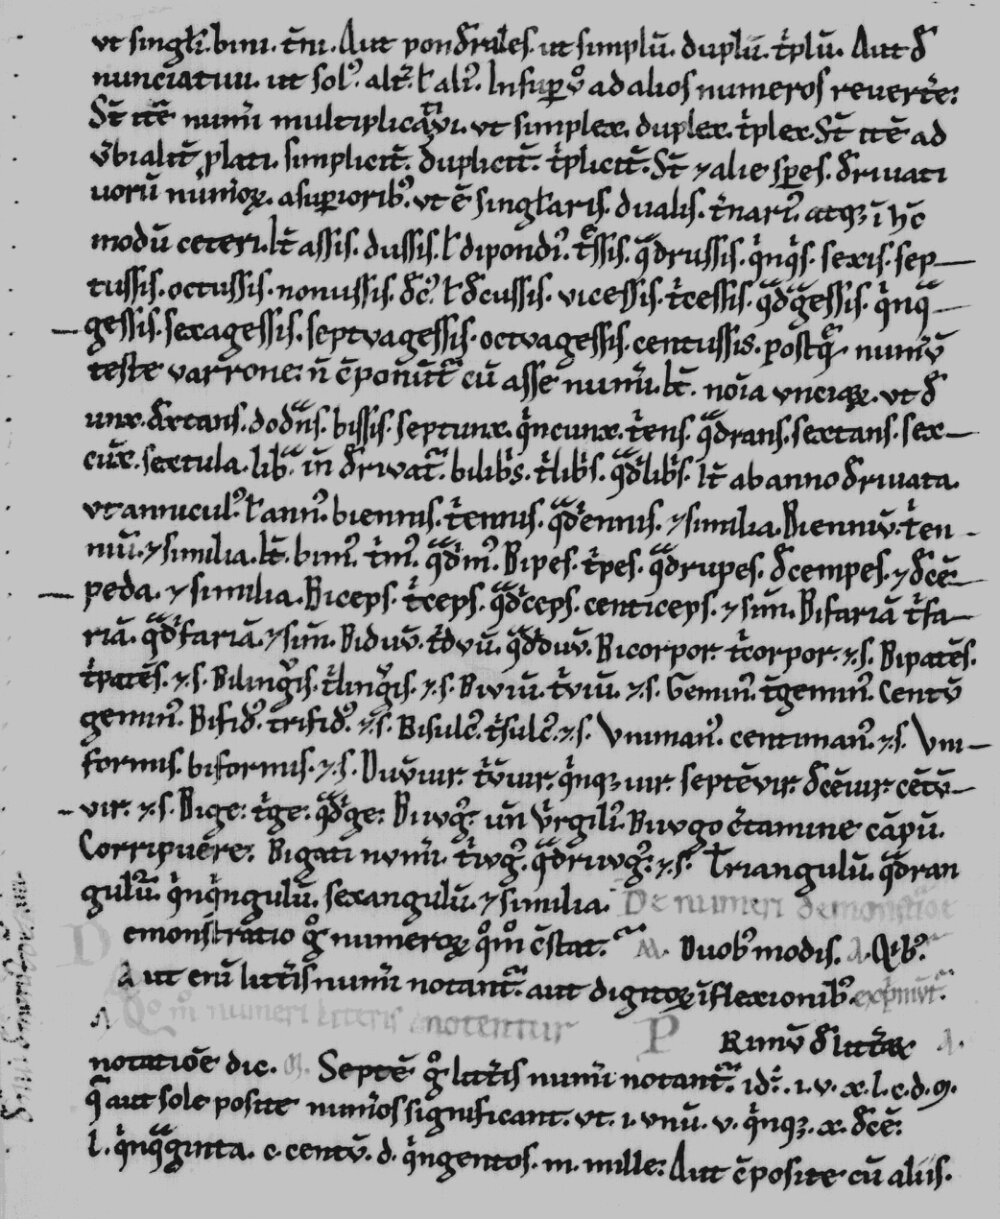 ut singłi. bini. t̄ni. Aut pond̄rales. ut simplū. duplū. tⁱplū. Aut đ
nunciatiui. ut sol⁹. alt̄. ł ali⁹. Insup̱ ū ad alios numeros reuerte:
St̄ itē num̄i multiplicatiui. ut simplex. duplex. tⁱplex. St̄ itē ad
ūbialit̄ plati. simplicit̄. duplicit̄. tⁱplicit̄. St̄ ⁊ alie sp̄es. đriuati
uorū nūm̄oꝝ. a sup̱iorib⁹. ut ē singłaris. dualis. t̄nari⁹. atqꝫ ī hc̄
modū ceteri. It̄ assis. dussis. ł dipondi⁹. t̄ssis. qᵃdrussis. qⁱnqⁱs. sexis. sep
tussis. octussis. nonussis. đc⁹. ł đcussis. vicessis. tⁱcessis. qᵃdᵃgessis. qⁱnqᵃ
gessis. sexagessis. septuagessis. octuagessis. centussis. postqᵃ numū
teste varrone: n̄ c̄ponūt̄ cū asse num̄i. It̄. noīa unciaꝝ. ut đ
unx. đxtans. dodᵃns. bissis. septunx. qⁱncunx. tⁱens. qᵃdrans. sextans. sex
cūx. sextula. libᵃ. in̄ đriuatᵃ. bilibⁱs. tⁱlibⁱs. qᵃđlibⁱs. It̄ ab anno đriuata.
ut annicul⁹. ł ann⁹. biennis. tⁱennis. qᵃđennis. ⁊ similia. Bienniū. tⁱen
niū. ⁊ similia. It̄. bim⁹. tⁱm⁹. qᵃđm⁹. Bipes. tⁱpes. qᵃdrupes. đcempes. ⁊ đcē
peda. ⁊ similia. Biceps. tⁱceps. qᵃđceps. centiceps. ⁊ sim̄. Bifariā tⁱfa
riā. qᵃđfariā. ⁊ sim̄. Biduū. tⁱduū. qᵃđduū. Bicorpor. tⁱcorpor. ⁊ s. Bipatēs.
tⁱpatēs. ⁊ s. Bilingⁱs. tⁱlingⁱs. ⁊ s. Biuiū. tⁱuiū. ⁊ s. Gemin⁹. tⁱgemin⁹. centū
gemin⁹. Bifid⁹. trifid⁹. ⁊ s. Bisulc⁹. tⁱsulc⁹. ⁊ s. Uniman⁹. centiman⁹. ⁊ s. Uni
formis. biformis. ⁊ s. Duūuir. tⁱūuir. qⁱnqꝫ uir. septēvir. đcēuir. cētū
vir. ⁊ s. Bige: tⁱge. qᵃđge: Biiug⁹. un̄ Vⁱrgili⁹. Biiugo c̄tamine cāpū.
Corripuēre: Bigati num̄i. tⁱiug⁹. qᵃđriiug⁹. ⁊ s. Triangulū. qᵃdran
gulū. qⁱnqⁱngulū. sexangulū. ⁊ similia. De numeri demonstᵃtioē
D emonstratio g° numeroꝝ q°m° c̄stat. M. Duob⁹ modis. Δ. Qⁱb⁹.
Aut enī litt̄is num̄i notant̄. aut digitoꝝ īflexionib⁹. exp̱mūt̄.
Δ Q° m° numeri litteris notentur P Rimū đ litt̄aꝝ Δ.
notatiōe dic. M. Septē g° litt̄is num̄i notant̄. id⁹. i. v. x. l. c. d. m.
qᵃ aut sole posite num̄os significant. ut. i. unū. v. qⁱnqꝫ. x. đcē:
l. qⁱnqᵃginta. c. centū. d. qⁱngentos. m. mille: Aut c̄posite cū aliis.